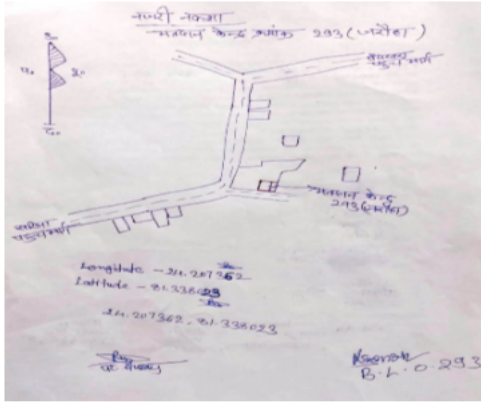 नजरी नक्शा
मतदान केन्द्र क्रमांक 293 (जरौहा)
उ०
प०
पू०
द०
पहुंच मार्ग
मतदान केन्द्र
293 (जरौहा)
पहुंच मार्ग
Longitude - 24.207362
Latitude - 81.338023
24.207362, 81.338023
B.L.O. 293